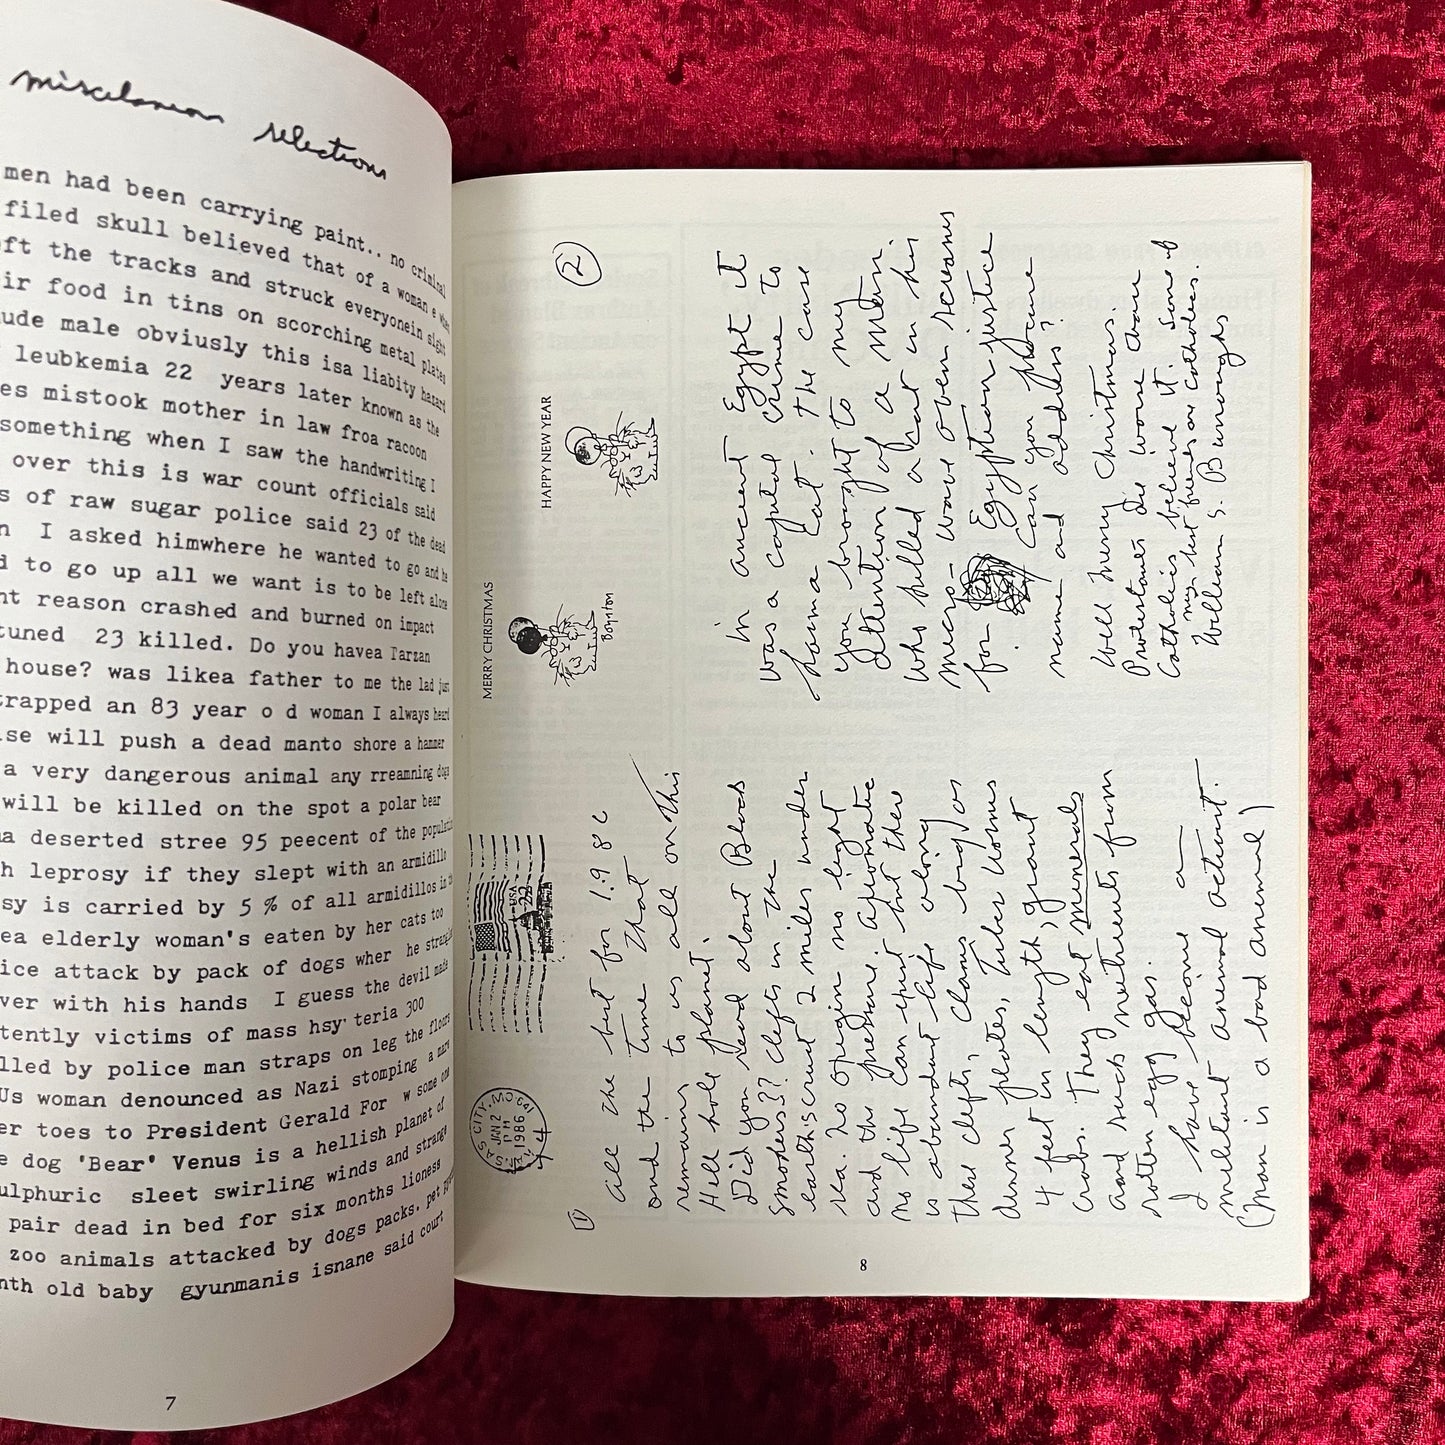 miscelaneous selections
men had been carrying paint.. no criminal
filed skull believed that of a woman e when
oft the tracks and struck everyonein sight
ir food in tins on scorching metal plates
ude male obviusly this isa liability hazard
leubkemia 22 years later known as the
es mistook mother in law froa racoon
something when I saw the handwriting I
over this is war count officials said
s of raw sugar police said 23 of the dead
n I asked himwhere he wanted to go and he
d to go up all we want is to be left alone
nt reason crashed and burned on impact
tuned 23 killed. Do you havea Tarzan
house? was likea father to me the lad just
trapped an 83 year o d woman I always heard
ise will push a dead manto shore a hammer
a very dangerous animal any rreamning dogs
will be killed on the spot a polar bear
a deserted stree 95 peecent of the population
h leprosy if they slept with an armidillo
sy is carried by 5 % of all armidillos in
ea elderly woman's eaten by her cats too
ice attack by pack of dogs wher he strangled
ver with his hands I guess the devil made
tently victims of mass hsy teria 300
lled by police man straps on leg the floors
Us woman denounced as Nazi stomping a mare
er toes to President Gerald For w some one
e dog 'Bear' Venus is a hellish planet of
ulphuric sleet swirling winds and strange
pair dead in bed for six months lioness
zoo animals attacked by dogs packs. pet
nth old baby gyunmanis isnane said court
7
KANSAS CITY, MO 641
JAN 2
PM
1986
USA
22
1
All the best for 1986
and the time that
remains to us all on this
Hell hole planet.
Did you read about Black
Smokers?? Clefts in the
earth's crust 2 miles under
sea. no oxigin no light
and the pressure. Axiomatic
no life can exist but there
is abundant life along
these clefts, clams big as
dinner plates, Tube worms
4 feet in length, giant
crabs. They eat minerals
and suck nutrients from
rotten egg gas.
I have become a
militant animal activist.
(Man is a bad animal)
MERRY CHRISTMAS
HAPPY NEW YEAR
Boynton
2
in ancient Egypt it
was a capital crime to
harm a cat. The case
you brought to my
attention of a man
who killed a cat in his
micro-wave oven screams
for Egyptian justice
. Can you procure
name and address?
Well merry Christmas.
Protestants die worse than
Catholics believe it. Some of
my best friends are Catholics.
William S. Burroughs
8